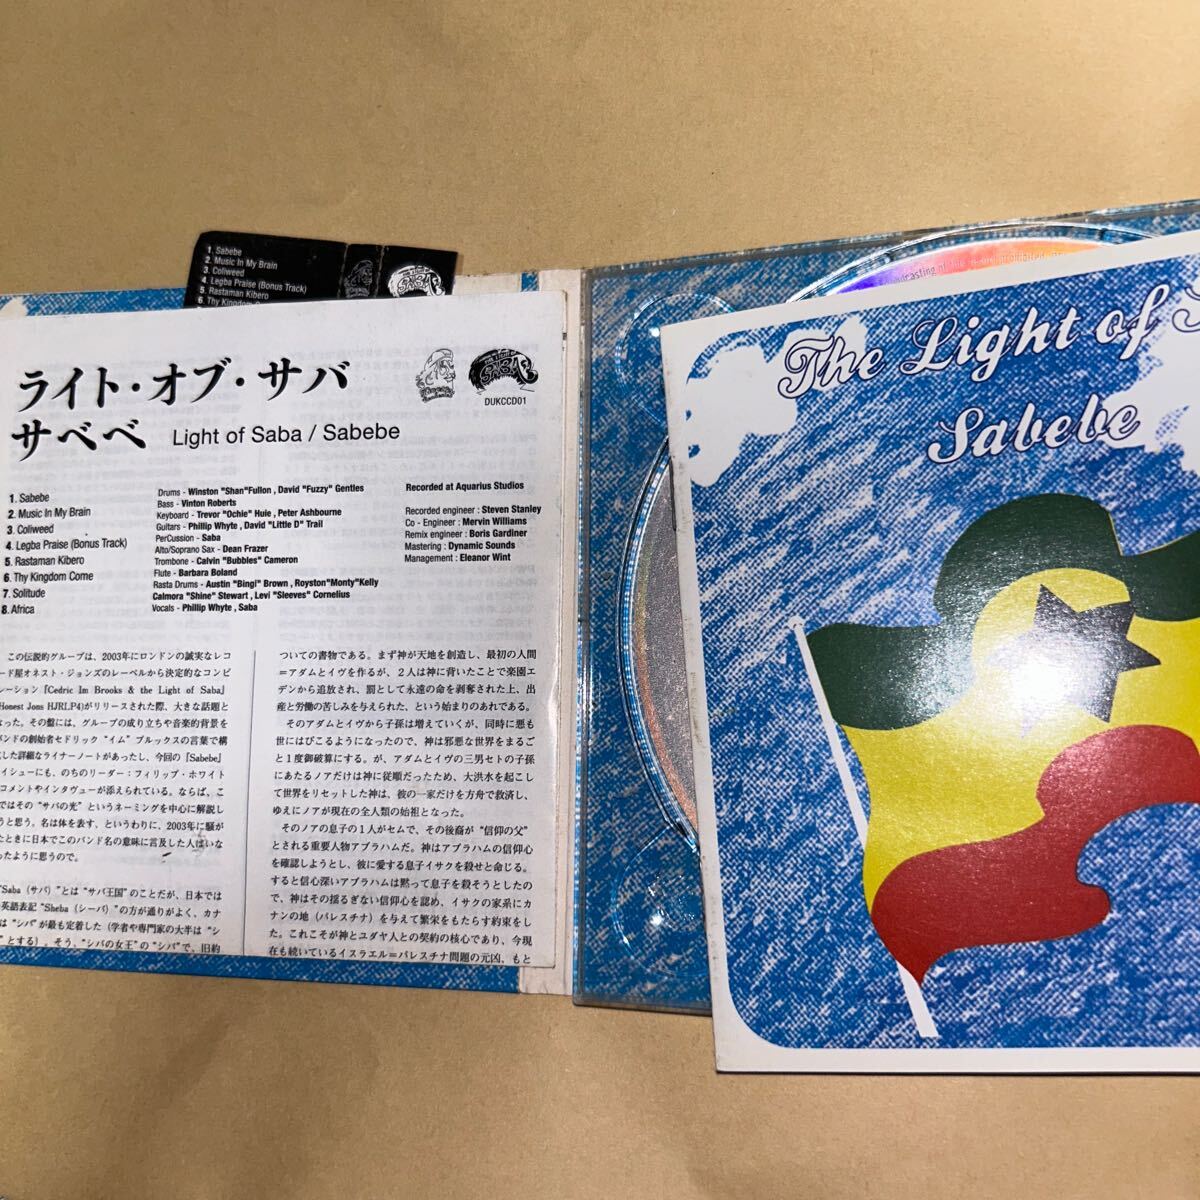 1. Sabebe
2. Music In My Brain
3. Coliweed
4. Legba Praise (Bonus Track)
5. Rastaman Kibero
6. Thy Kingdom
ライト・オブ・サバ
サベベ Light of Saba / Sabebe
DUKCCD01
1. Sabebe
2. Music In My Brain
3. Coliweed
4. Legba Praise (Bonus Track)
5. Rastaman Kibero
6. Thy Kingdom Come
7. Solitude
8. Africa
Drums - Winston "Shan"Fullon , David "Fuzzy" Gentles
Bass - Vinton Roberts
Keyboard - Trevor "Ochie" Huie , Peter Ashbourne
Guitars - Phillip Whyte , David "Little D" Trail
PerCussion - Saba
Alto/Soprano Sax - Dean Frazer
Trombone - Calvin "Bubbles" Cameron
Flute - Barbara Boland
Rasta Drums - Austin "Bingi" Brown , Royston"Monty"Kelly
Calmora "Shine" Stewart , Levi "Sleeves" Cornelius
Vocals - Phillip Whyte , Saba
Recorded at Aquarius Studios
Recorded engineer : Steven Stanley
Co - Engineer : Mervin Williams
Remix engineer : Boris Gardiner
Mastering : Dynamic Sounds
Management : Eleanor Wint
この伝説的グループは、2003年にロンドンの誠実なレコ
ード屋オネスト・ジョンズのレーベルから決定的なコンピ
レーション『Cedric Im Brooks & the Light of Saba』
Honest Jons HJRLP4)がリリースされた際、大きな話題と
なった。その盤には、グループの成り立ちや音楽的背景を
バンドの創始者セドリック“イム”ブルックスの言葉で構
した詳細なライナーノートがあったし、今回の『Sabebe』
イシューにも、のちのリーダー：フィリップ・ホワイト
コメントやインタヴューが添えられている。ならば、こ
ではその“サバの光”というネーミングを中心に解説し
うと思う。名は体を表す、というわりに、2003年に騒が
たときに日本でこのバンド名の意味に言及した人はいな
ったように思うので。
“Saba（サバ）”とは“サバ王国”のことだが、日本では
英語表記“Sheba（シーバ）”の方が通りがよく、カナ
は“シバ”が最も定着した（学者や専門家の大半は“シ
”とする）。そう、“シバの女王”の“シバ”で、旧約
ついての書物である。まず神が天地を創造し、最初の人間
＝アダムとイヴを作るが、2人は神に背いたことで楽園エ
デンから追放され、罰として永遠の命を剥奪された上、出
産と労働の苦しみを与えられた、という始まりのあれである。
そのアダムとイヴから子孫は増えていくが、同時に悪も
世にはびこるようになったので、神は邪悪な世界をまるご
と1度御破算にする。が、アダムとイヴの三男セトの子孫
にあたるノアだけは神に従順だったため、大洪水を起こし
て世界をリセットした神は、彼の一家だけを方舟で救済し、
ゆえにノアが現在の全人類の始祖となった。
そのノアの息子の1人がセムで、その後裔が“信仰の父”
とされる重要人物アブラハムだ。神はアブラハムの信仰心
を確認しようとし、彼に愛する息子イサクを殺せと命じる。
すると信心深いアブラハムは黙って息子を殺そうとしたの
で、神はその揺るぎない信仰心を認め、イサクの家系にカ
ナンの地（パレスチナ）を与えて繁栄をもたらす約束をし
た。これこそが神とユダヤ人との契約の核心であり、今現
在も続いているイスラエル＝パレスチナ問題の元凶、もと
The Light of
Sabebe